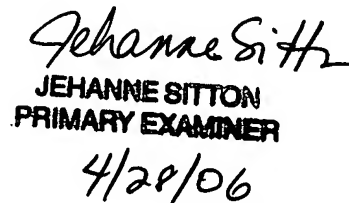 Jehanne Sitton
JEHANNE SITTON
PRIMARY EXAMINER
4/28/06